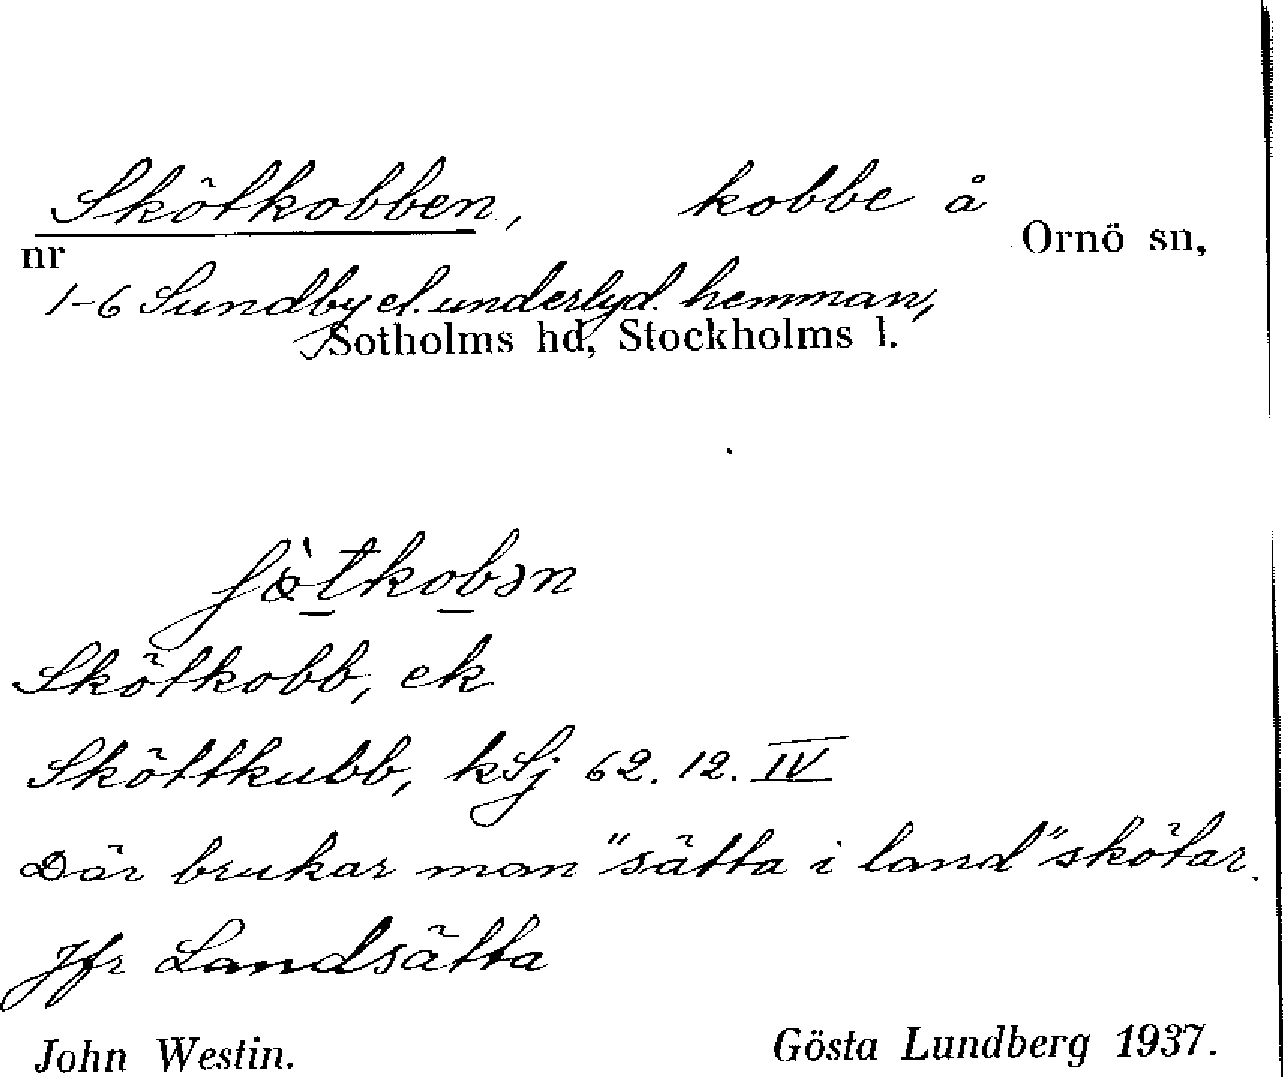 Skötkobben, kobbe å
nr Ornö sn,
1-6 Sundby el. underlyd. hemman,
Sotholms hd, Stockholms l.
ʃö̀tkobən
Skötkobb, ek
Sköttkubb, kSj 62. 12. IV
Där brukar man "sätta i land" skötar.
Jfr Landsätta
John Westin. Gösta Lundberg 1937.